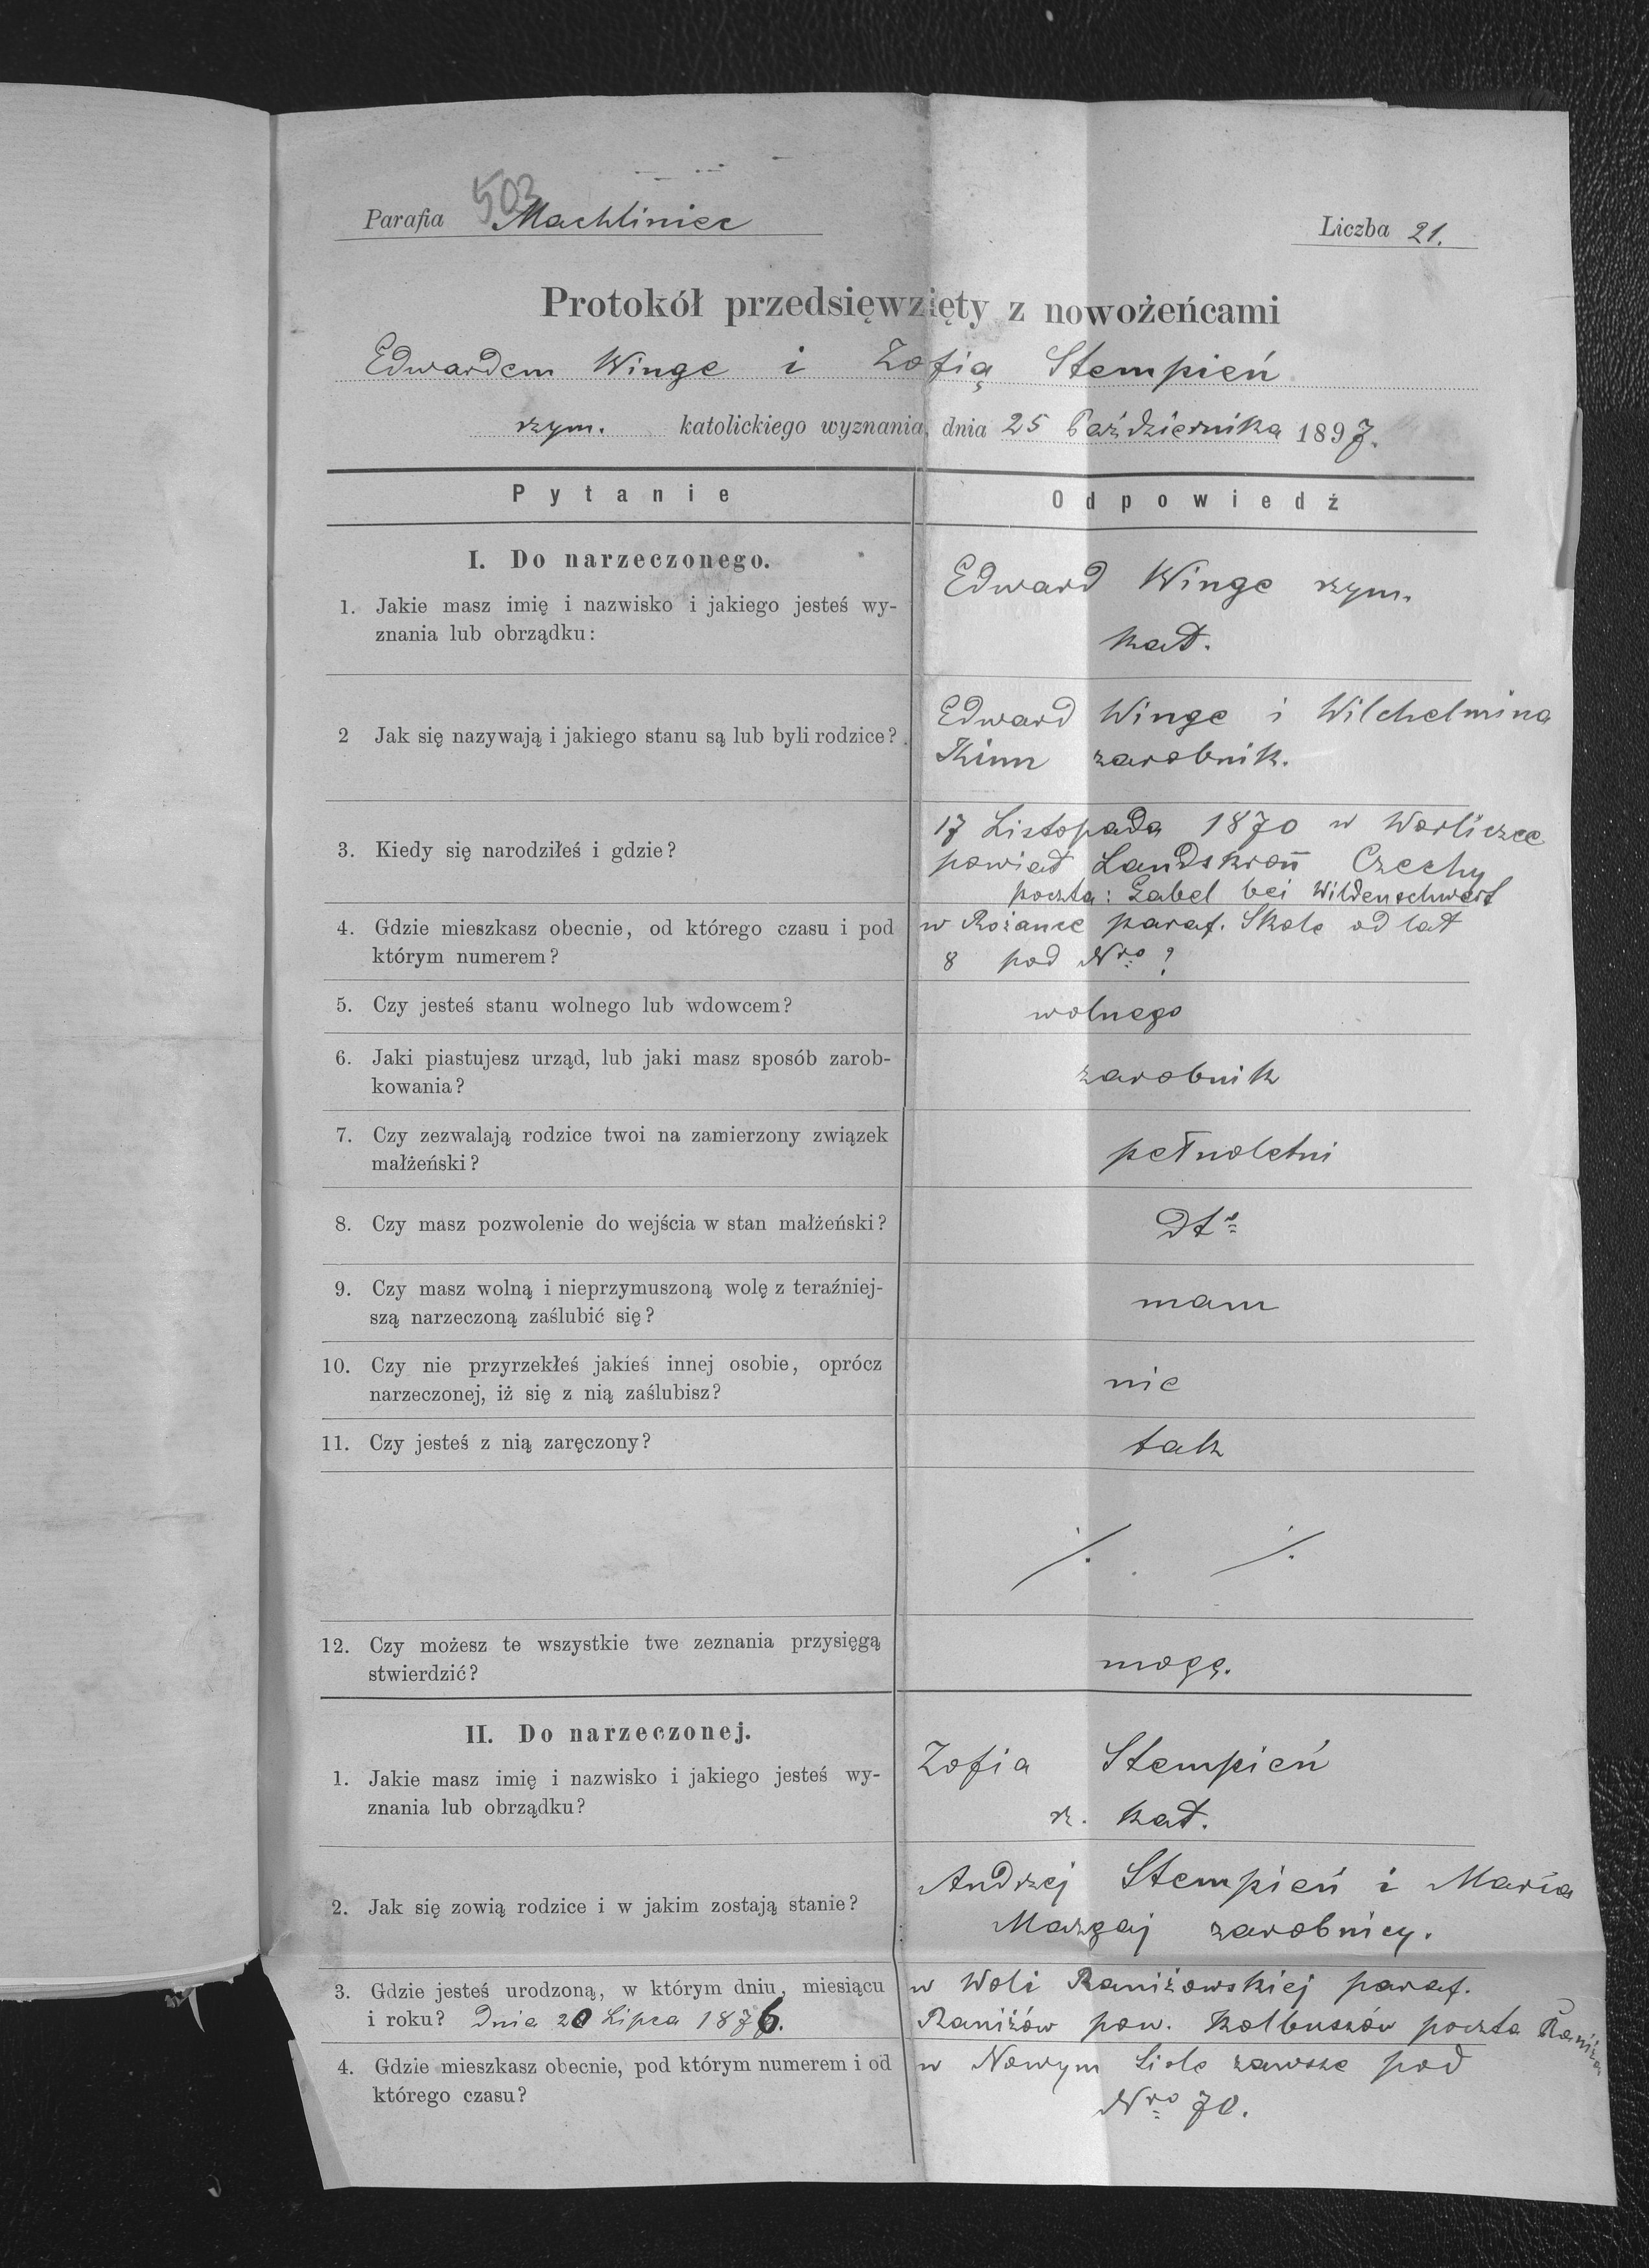 503
Parafia Machliniec
Liczba 21.
Protokół przedsięwzięty z nowożeńcami
Edwardem Winge i Zofią Stempień
rzym. katolickiego wyznania, dnia 25 Października 1897.
Pytanie
Odpowiedź
I. Do narzeczonego.
1. Jakie masz imię i nazwisko i jakiego jesteś wy-
znania lub obrządku:
Edward Winge rzym.
kat.
2 Jak się nazywają i jakiego stanu są lub byli rodzice?
Edward Winge i Wilchelmina
Kinn zarobnik.
3. Kiedy się narodziłeś i gdzie?
17 Listopada 1870 w Worliczce
powiat Landskron Czechy
poczta: Gabel bei Wildenschwert
4. Gdzie mieszkasz obecnie, od którego czasu i pod
którym numerem?
w Rożance paraf. Skole od lat
8 pod Nro ?
5. Czy jesteś stanu wolnego lub wdowcem?
wolnego
6. Jaki piastujesz urząd, lub jaki masz sposób zarob-
kowania?
zarobnik
7. Czy zezwalają rodzice twoi na zamierzony związek
małżeński?
pełnoletni
8. Czy masz pozwolenie do wejścia w stan małżeński?
9. Czy masz wolną i nieprzymuszoną wolę z teraźniej-
szą narzeczoną zaślubić się?
mam
10. Czy nie przyrzekłeś jakieś innej osobie, oprócz
narzeczonej, iż się z nią zaślubisz?
nie
11. Czy jesteś z nią zaręczony?
tak
·/. ·/.
12. Czy możesz te wszystkie twe zeznania przysięgą
stwierdzić?
mogę.
II. Do narzeczonej.
1. Jakie masz imię i nazwisko i jakiego jesteś wy-
znania lub obrządku?
Zofia Stempień
r. kat.
2. Jak się zowią rodzice i w jakim zostają stanie?
Andrzej Stempień i Maria
Mazgaj zarobnicy.
3. Gdzie jesteś urodzoną, w którym dniu, miesiącu
i roku? Dnia 20 Lipca 1876.
w Woli Raniżowskiej paraf.
Raniżów pow. Kolbuszów poczta Raniżów
4. Gdzie mieszkasz obecnie, pod którym numerem i od
którego czasu?
w Nowym Siole zawsze pod
Nro 70.